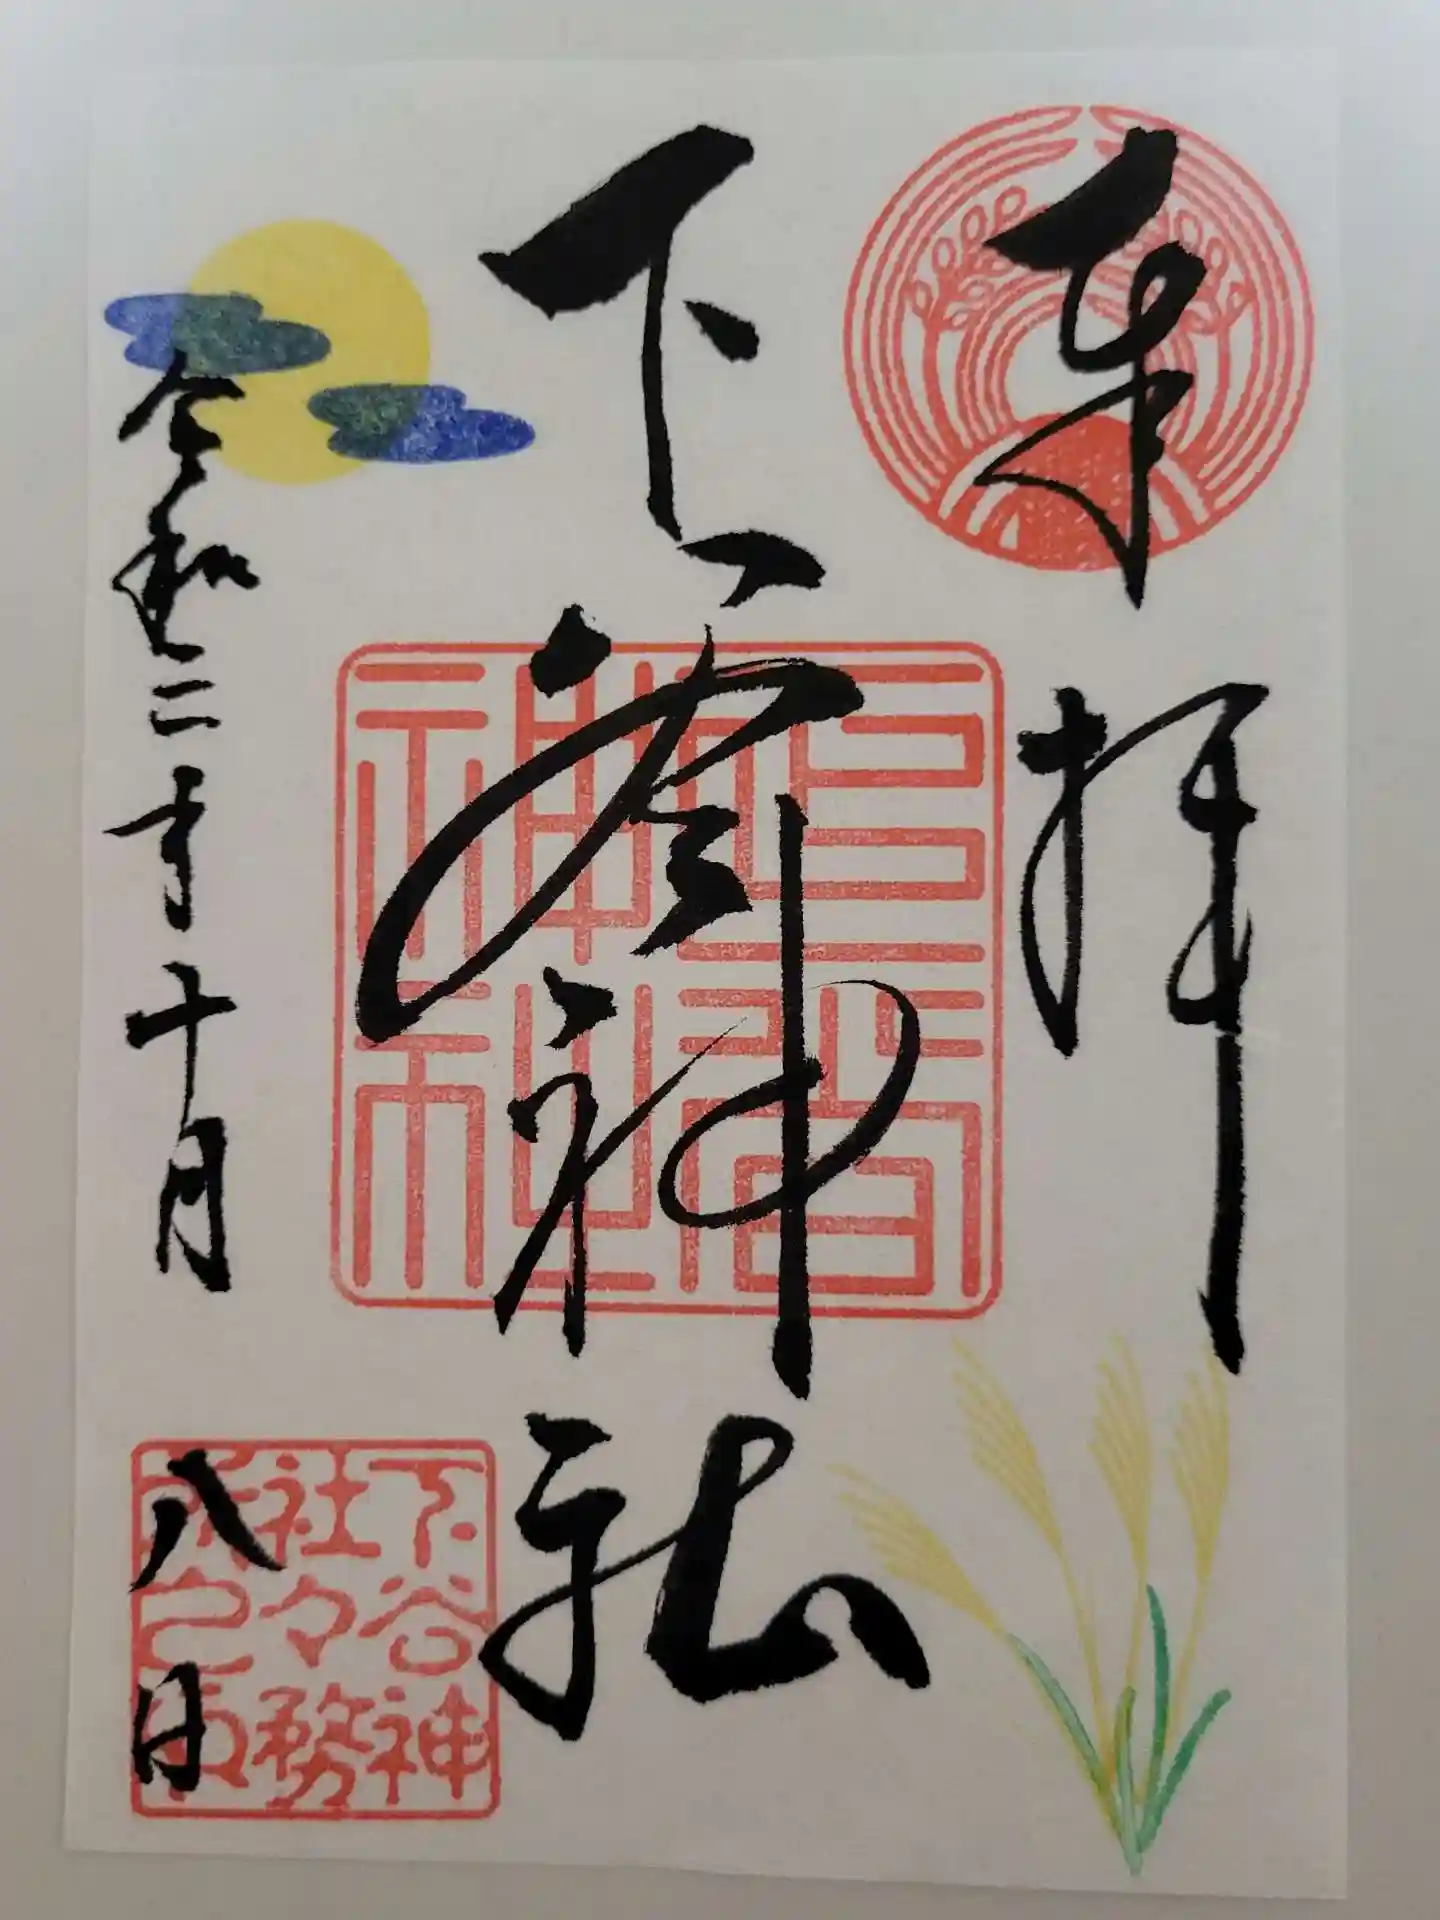 奉拝
下谷神社
令和二年十月八日
下谷神
社々務
所之印